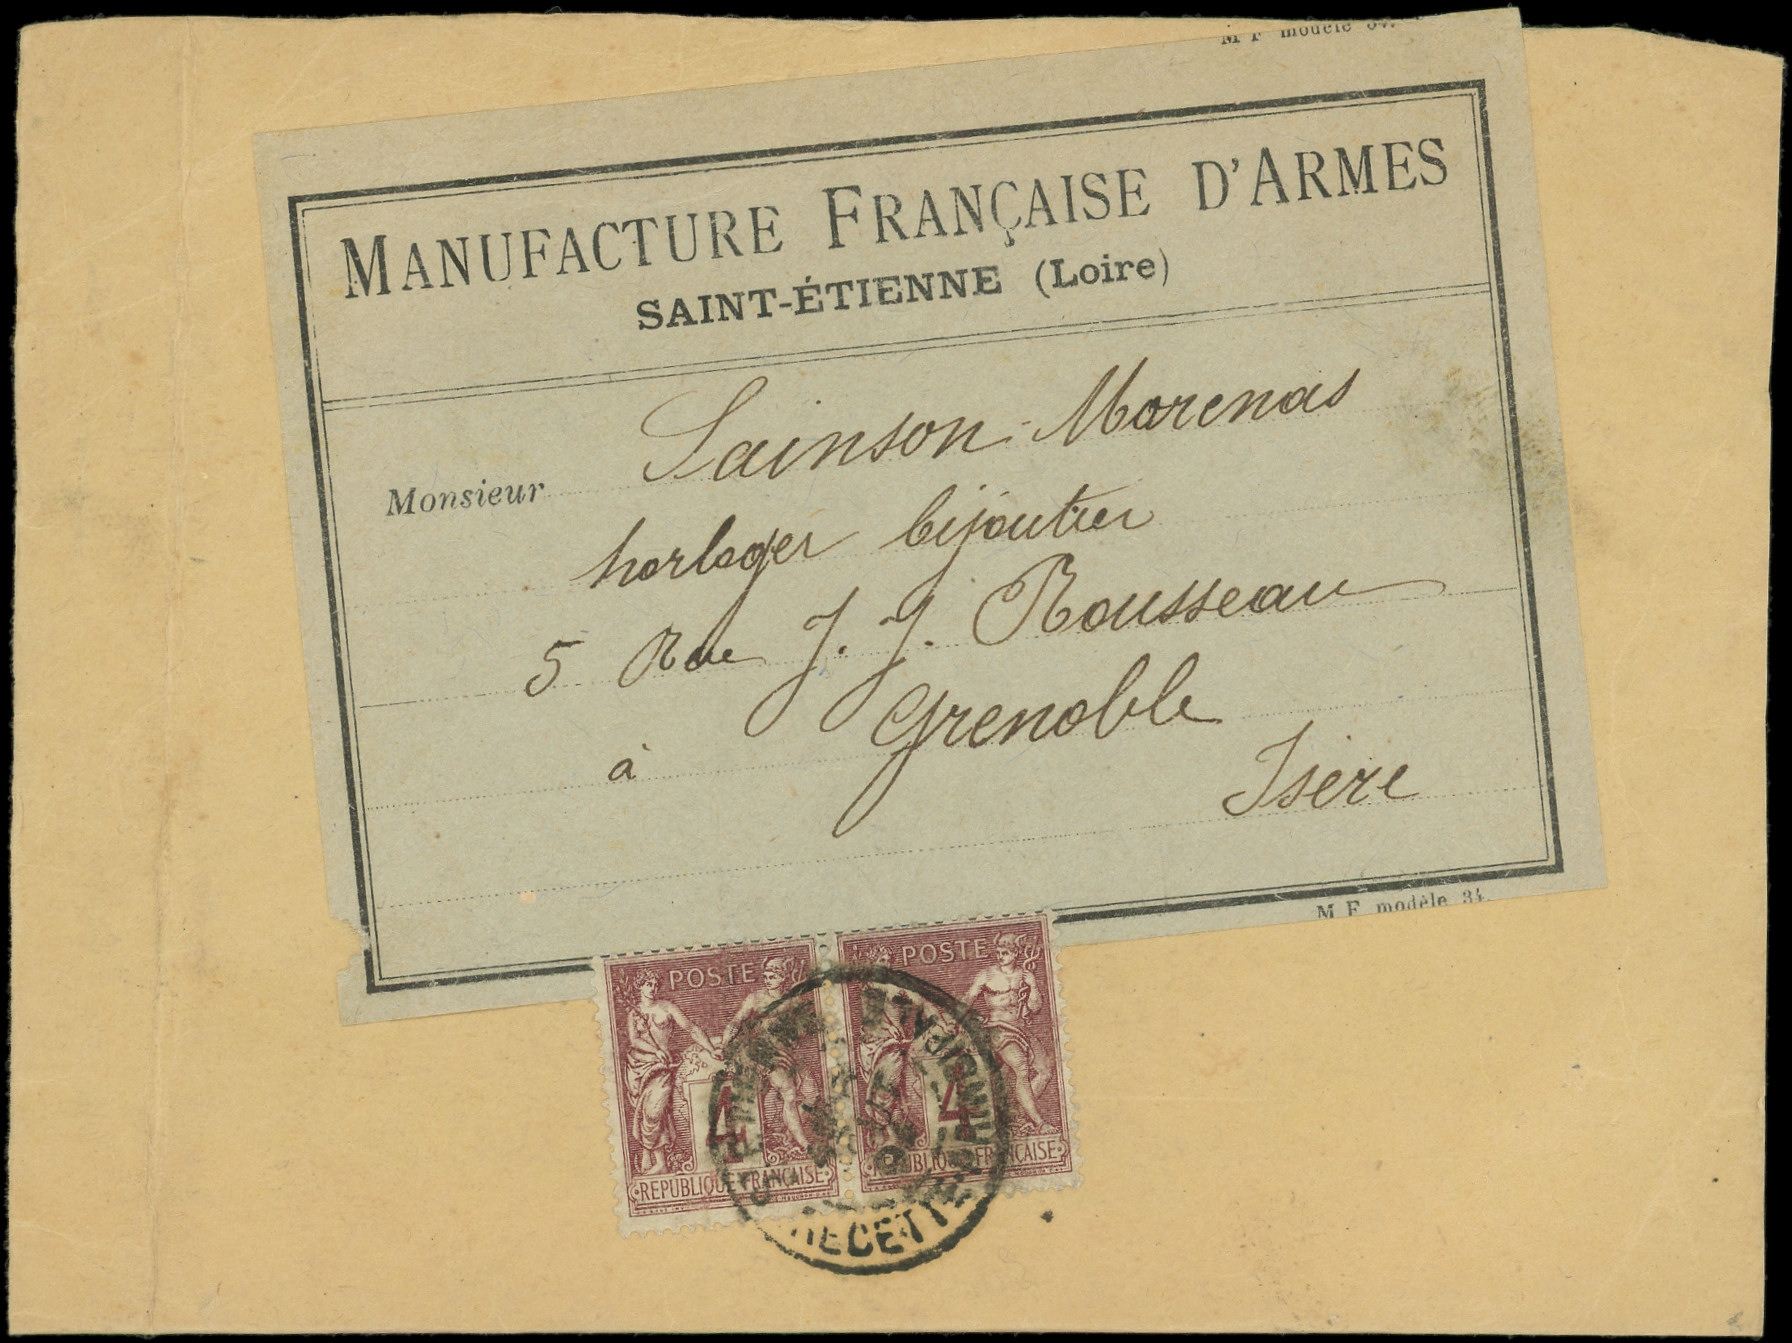 M F modèle 34.
MANUFACTURE FRANÇAISE D'ARMES
SAINT-ÉTIENNE (Loire)
Monsieur Sainson-Morenas
horloger bijoutier
5 Rue J. J. Rousseau
à Grenoble
Isère
M F modèle 34.
POSTE
4
REPUBLIQUE FRANÇAISE
POSTE
4
REPUBLIQUE FRANÇAISE
RECETTE PRINCIPALE